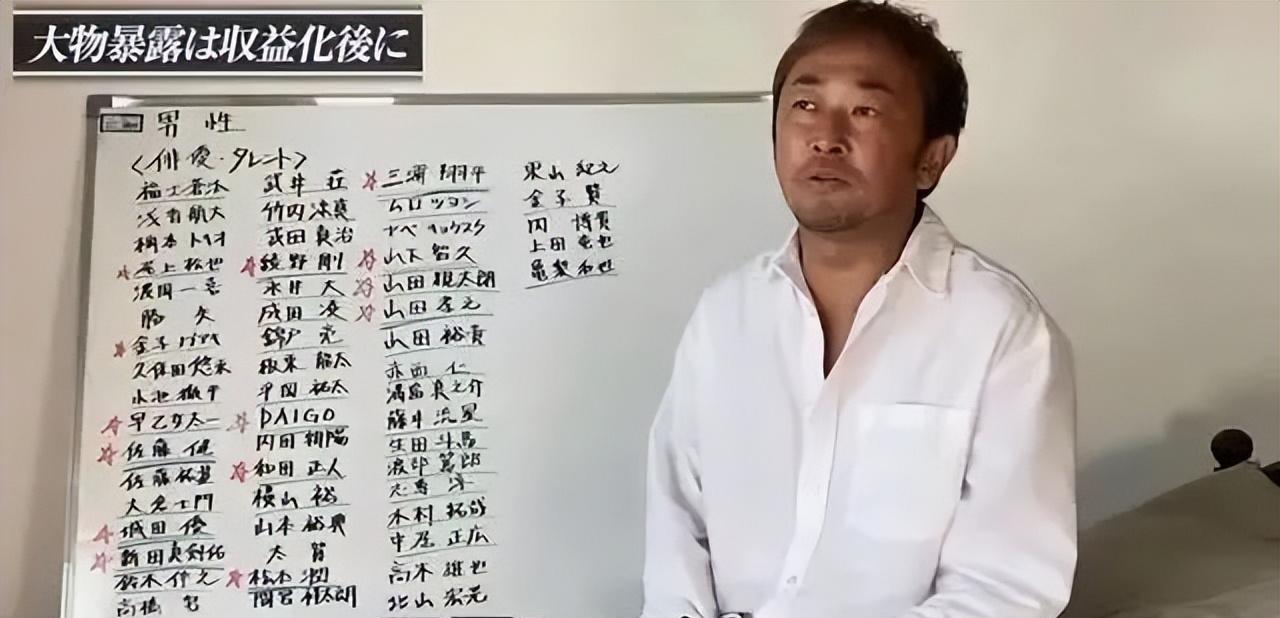 大物暴露は収益化後に
男性
〈俳優・タレント〉
福士蒼汰
浅香航大
☆尾上松也
勝矢
☆金子ノブアキ
久保田悠来
小池徹平
☆早乙女太一
☆佐藤 健
佐藤祐基
大倉士門
☆城田 優
☆新田真剣佑
鈴木伸之
高橋
武井 荘
竹内涼真
武田真治
☆綾野 剛
永井 大
成田 凌
錦戸 亮
平岡祐太
☆DAIGO
内田朝陽
☆和田正人
横山 裕
山本裕典
太賀
☆松本 潤
間宮祥太朗
☆三浦翔平
ムロツヨシ
☆山下智久
☆山田親太朗
☆山田孝之
山田裕貴
赤西 仁
満島真之介
藤井流星
生田斗馬
渡部篤郎
木村拓哉
中居正広
高木雄也
北山宏光
東山紀之
金子 賢
内 博貴
上田竜也
亀梨和也